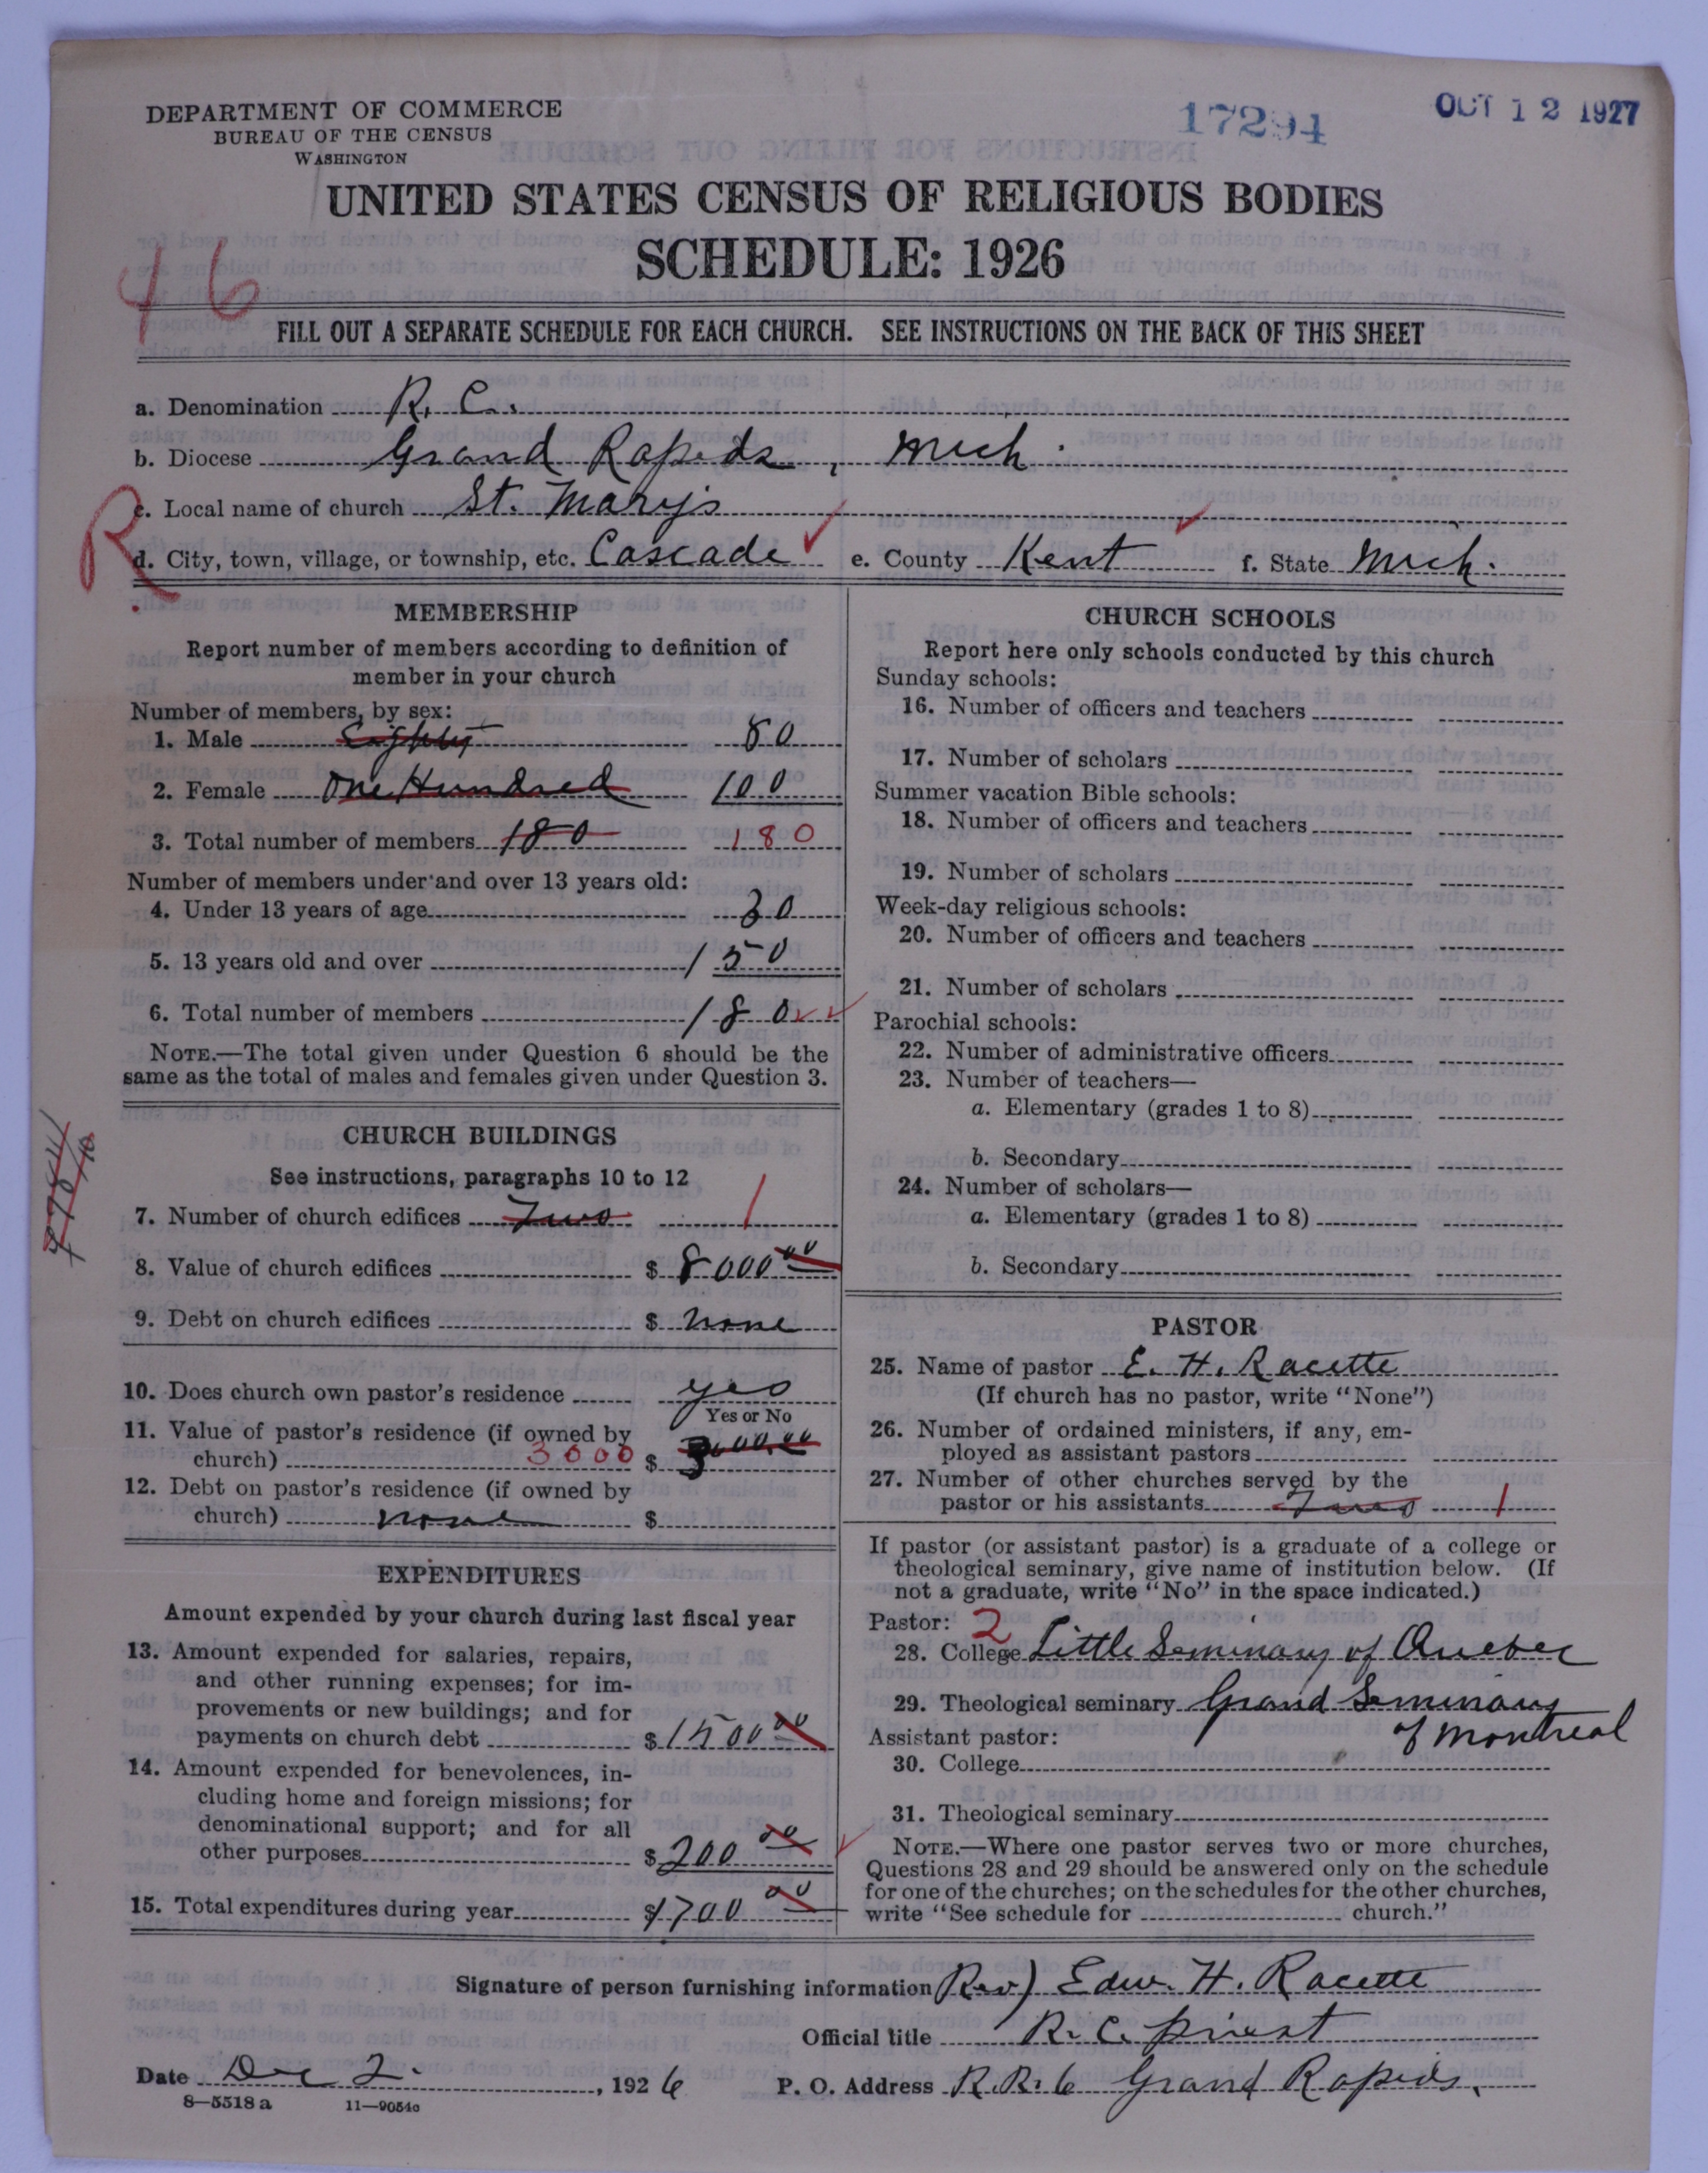 DEPARTMENT OF COMMERCE
BUREAU OF THE CENSUS
WASHINGTON
17294
OCT 12 1927
UNITED STATES CENSUS OF RELIGIOUS BODIES
SCHEDULE: 1926
46
FILL OUT A SEPARATE SCHEDULE FOR EACH CHURCH. SEE INSTRUCTIONS ON THE BACK OF THIS SHEET
a. Denomination R. C.
b. Diocese Grand Rapids, Mich.
R
c. Local name of church St. Mary's
d. City, town, village, or township, etc. Cascade e. County Kent f. State Mich.
MEMBERSHIP
Report number of members according to definition of
member in your church
Number of members, by sex:
1. Male Eighty 80
2. Female One Hundred 100
3. Total number of members 180 180
Number of members under and over 13 years old:
4. Under 13 years of age 30
5. 13 years old and over 150
6. Total number of members 180
NOTE.—The total given under Question 6 should be the
same as the total of males and females given under Question 3.
CHURCH BUILDINGS
See instructions, paragraphs 10 to 12
7. Number of church edifices Two 1
8. Value of church edifices $ 8000 00
9. Debt on church edifices $ none
10. Does church own pastor's residence yes
Yes or No
11. Value of pastor's residence (if owned by
church) 3000 $ 3000.00
12. Debt on pastor's residence (if owned by
church) none $
EXPENDITURES
Amount expended by your church during last fiscal year
13. Amount expended for salaries, repairs,
and other running expenses; for im-
provements or new buildings; and for
payments on church debt $ 1500 00
14. Amount expended for benevolences, in-
cluding home and foreign missions; for
denominational support; and for all
other purposes $ 200 00
15. Total expenditures during year $ 1700 00
CHURCH SCHOOLS
Report here only schools conducted by this church
Sunday schools:
16. Number of officers and teachers
17. Number of scholars
Summer vacation Bible schools:
18. Number of officers and teachers
19. Number of scholars
Week-day religious schools:
20. Number of officers and teachers
21. Number of scholars
Parochial schools:
22. Number of administrative officers
23. Number of teachers—
a. Elementary (grades 1 to 8)
b. Secondary
24. Number of scholars—
a. Elementary (grades 1 to 8)
b. Secondary
PASTOR
25. Name of pastor E. H. Racette
(If church has no pastor, write "None")
26. Number of ordained ministers, if any, em-
ployed as assistant pastors
27. Number of other churches served by the
pastor or his assistants Two 1
If pastor (or assistant pastor) is a graduate of a college or
theological seminary, give name of institution below. (If
not a graduate, write "No" in the space indicated.)
Pastor: 2
28. College Little Seminary of Quebec
29. Theological seminary Grand Seminary
of Montreal
Assistant pastor:
30. College
31. Theological seminary
NOTE.—Where one pastor serves two or more churches,
Questions 28 and 29 should be answered only on the schedule
for one of the churches; on the schedules for the other churches,
write "See schedule for church."
Signature of person furnishing information Rev) Edw. H. Racette
Official title R. C. priest
Date Dec 2. , 1926 P. O. Address R.R. 6 Grand Rapids.
8—5518 a 11—9054c